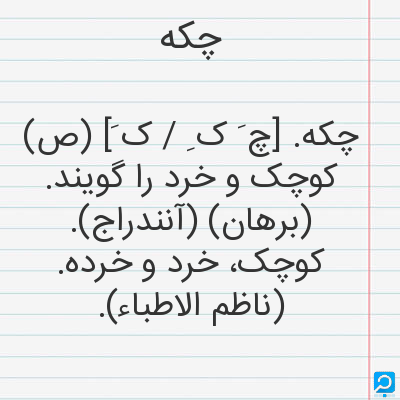 چکه
چکه. [چ َ ک ِ / ک َ] (ص)
کوچک و خرد را گویند.
(برهان) (آنندراج).
کوچک، خرد و خرده.
(ناظم الاطباء).